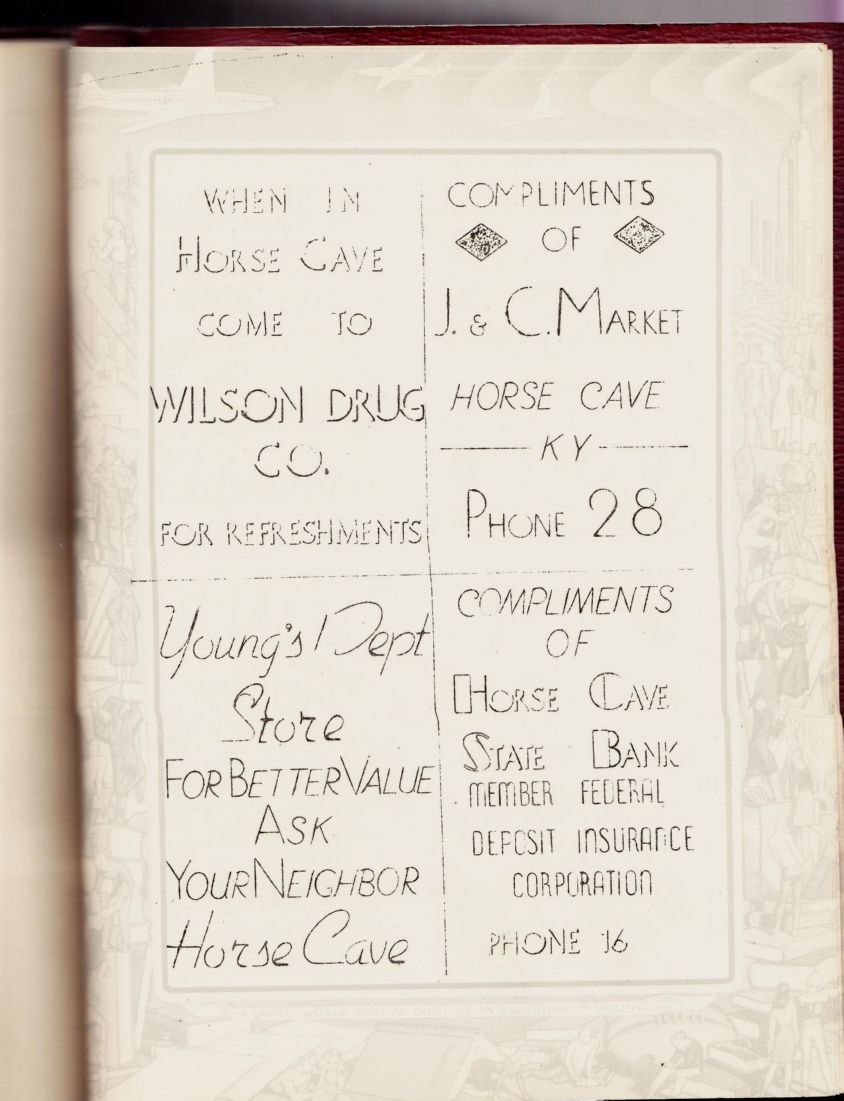 WHEN IN
HORSE CAVE
COME TO
WILSON DRUG
CO.
FOR REFRESHMENTS
COMPLIMENTS
OF
J. & C. MARKET
HORSE CAVE
KY
PHONE 28
Young's Dept
Store
FOR BETTER VALUE
ASK
YOUR NEIGHBOR
Horse Cave
COMPLIMENTS
OF
HORSE CAVE
STATE BANK
MEMBER FEDERAL
DEPOSIT INSURANCE
CORPORATION
PHONE 16
A UNITED WORLD MUST BE BUILT BY AN ENLIGHTENED YOUTH